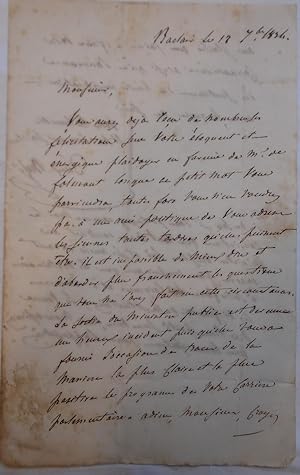 Barlair le 12 7bre 1834.
Monsieur,
Vous aurez déjà reçu de nombreuses
félicitations sur votre éloquent et
énergique plaidoyer en faveur de Mr. de
lorsque ce petit mot vous
parviendra toute fois vous n'en voudrez
pas à un ami politique de vous adresser
les siennes toutes tardives qu'elles puissent
être. il est impossible de mieux dire et
d'aborder plus franchement les questions
que vous ne l'avez fait en cette circonstance.
La sortie du ministère public est devenue
un heureux incident puisqu'elle vous a
fourni l'occasion de tracer de la
manière la plus claire et la plus
positive le programme de votre carrière
parlementaire. adieu, Monsieur, croyez